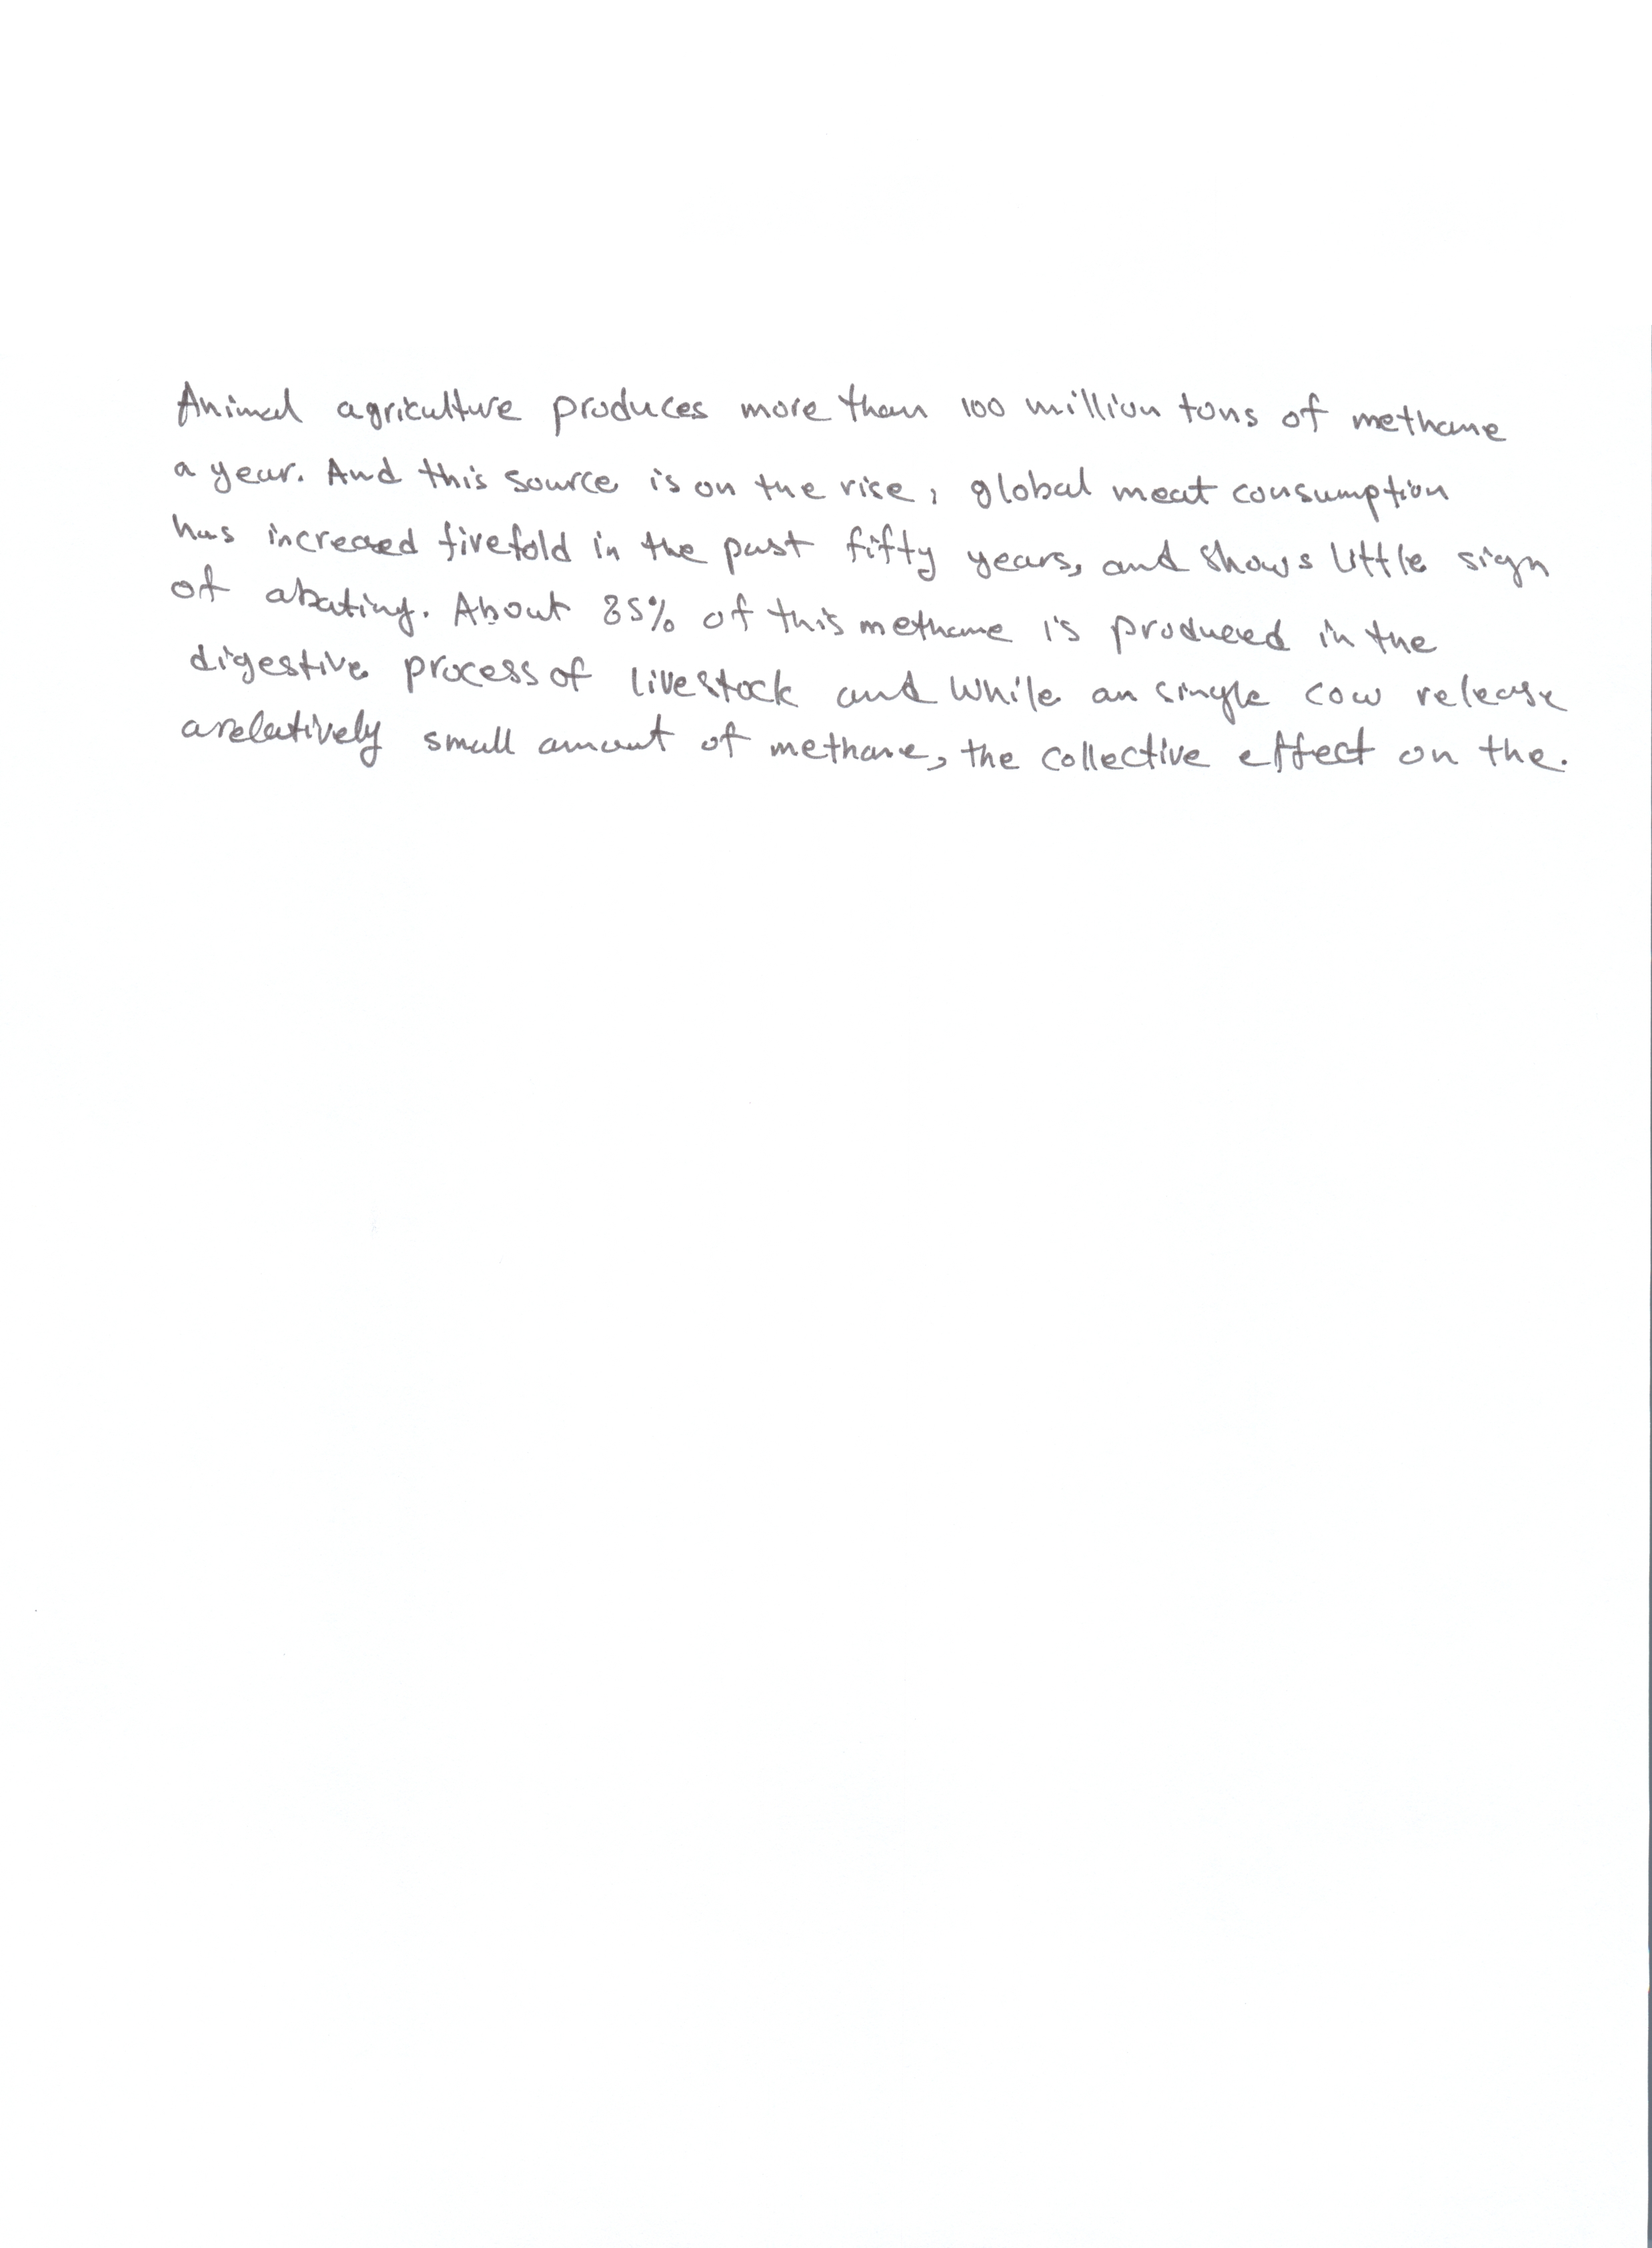 Animal agriculture produces more than 100 million tons of methane
a year. And this source is on the rise, global meat consumption
has increaed fivefold in the past fifty years, and shows little sign
of abating. About 85% of this methane is produced in the
digestive process of livestock and while an single cow release
a relatively small amount of methane, the collective effect on the.